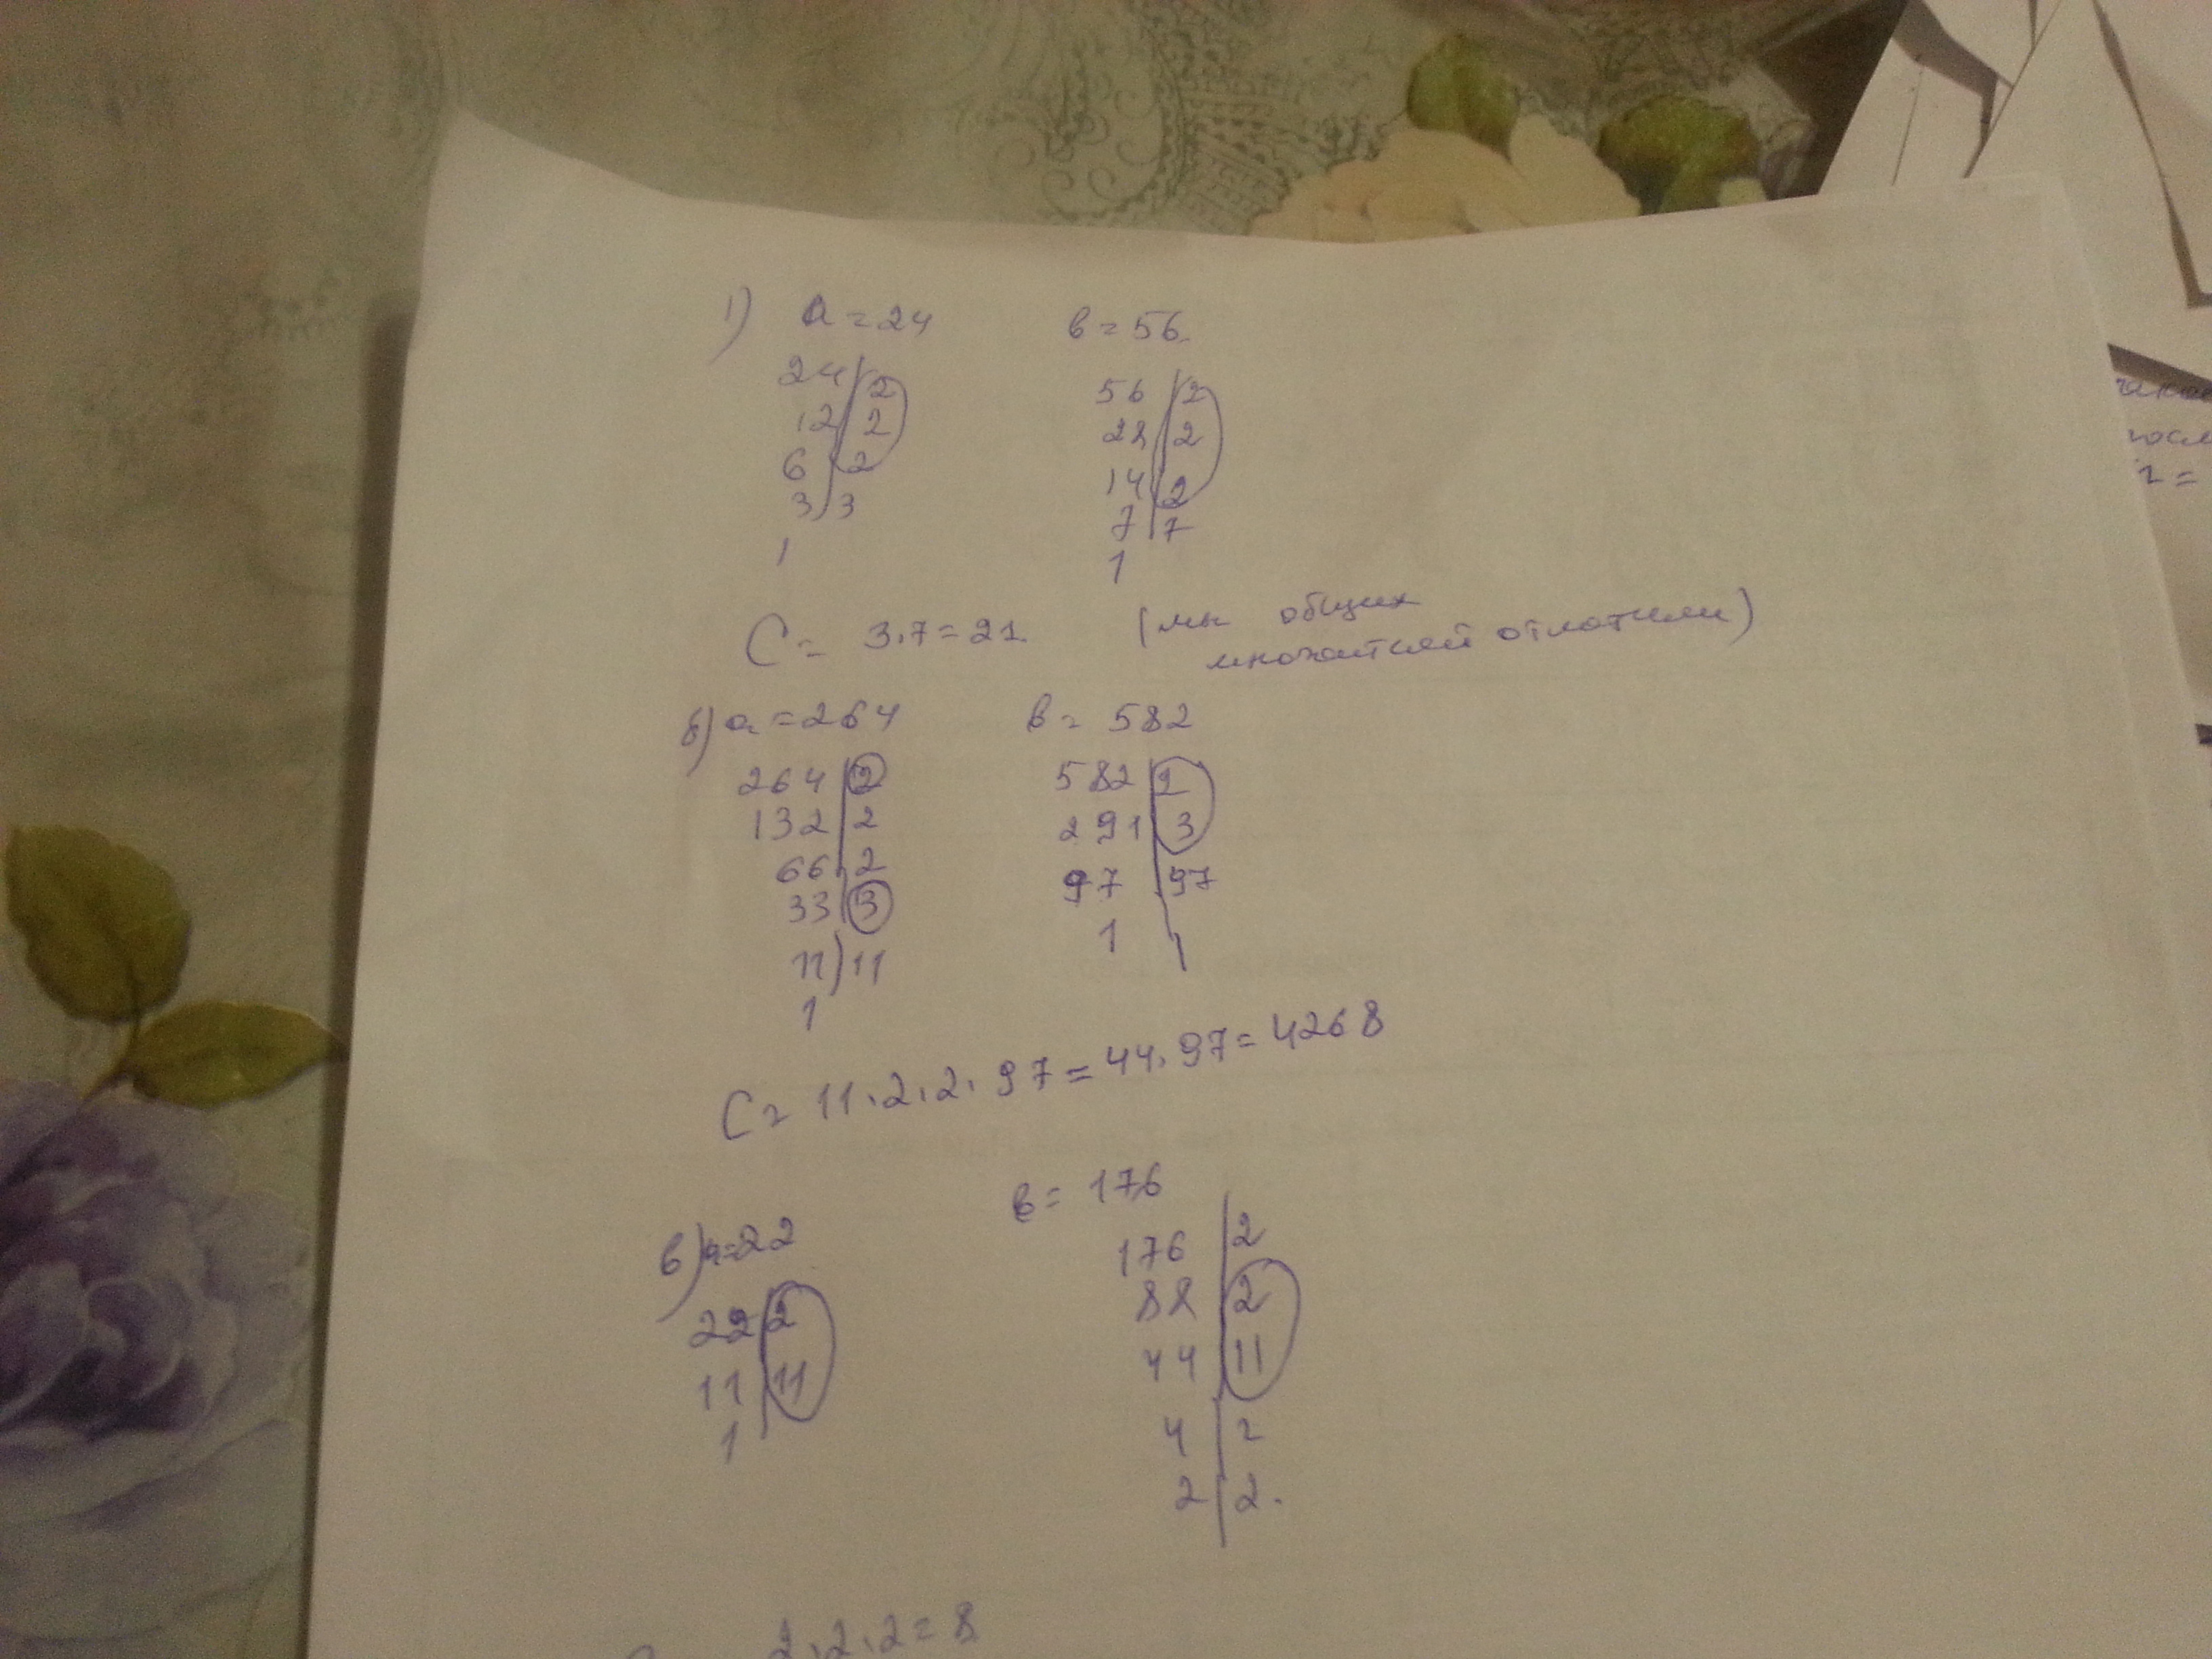 1) a = 24 в = 56
24 2 56 2
12 2 28 2
6 2 14 2
3 3 7 7
1 1
C = 3.7 = 21 (мы общих
множителей отметили)
б) a = 264 в = 582
264 2 582 2
132 2 291 3
66 2 97 97
33 3 1 1
11 11
1
C = 11.2.2.97 = 44.97 = 4268
в) a = 22 в = 176
22 2 176 2
11 11 88 2
1 44 11
4 2
2 2.
2.2.2 = 8